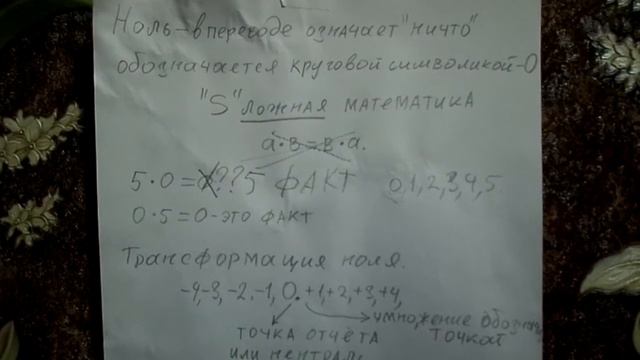 Ноль-в переводе означает "ничто"
обозначается круговой символикой-0
"S" ложная математика
а·в=в·а.
5·0=0??5 факт 0,1,2,3,4,5
0·5=0-это факт
Трансформация ноля.
-4,-3,-2,-1,0.+1,+2,+3,+4,
умножение обознач
точка отчёта точкой
или нейтраль